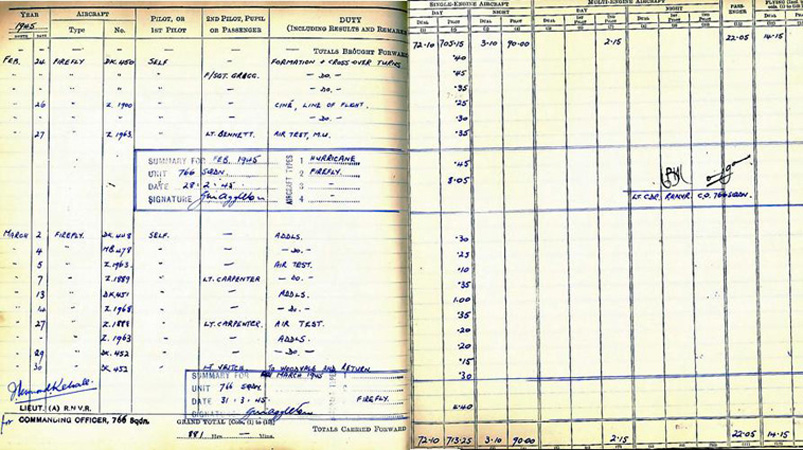 YEAR 1945 AIRCRAFT PILOT, OR 1ST PILOT 2ND PILOT, PUPIL OR PASSENGER DUTY (INCLUDING RESULTS AND REMARKS)
MONTH DATE Type No.
SINGLE-ENGINE AIRCRAFT MULTI-ENGINE AIRCRAFT PASS-ENGER
DAY NIGHT DAY NIGHT
DUAL PILOT DUAL PILOT DUAL 1ST PILOT 2ND PILOT DUAL 1ST PILOT 2ND PILOT
TOTALS BROUGHT FORWARD 72·10 705·15 3·10 90·00 2·15 22·05 14·15
FEB. 24 FIREFLY DK.450 SELF — FORMATION & CROSS-OVER TURNS ·40
" " " " " F/SGT. GREGG. — DO. — ·45
" " " " " — — DO. — ·35
" 26 " Z.1900 " — CINÉ, LINE OF FLIGHT. ·25
" " " " " — — DO. — ·30
" 27 " Z.1963 " LT. BENNETT. AIR TEST, M.U. ·35
SUMMARY FOR FEB. 1945 AIRCRAFT TYPES 1 HURRICANE ·45
UNIT 766 SQDN. 2 FIREFLY. 8·05
DATE 28·2·45· 3 —
SIGNATURE 4 —
LT. CDR. R.N.V.R. C.O. 766 SQDN.
MARCH 2 FIREFLY. DK.448 SELF. — ADDLS. ·30
" 4 " MB.478 " — — DO. — ·25
" 5 " Z.1963 " — AIR TEST. ·10
" 7 " Z.1889 " LT. CARPENTER — DO. — ·35
" 13 " DK.451 " — ADDLS. 1·00
" 14 " Z.1968 " — — DO. — ·35
" 27 " Z.1888 " LT. CARPENTER. AIR TEST. ·20
" " " Z.1963 " — ADDLS. ·20
" 29 " DK.452 " — — DO. — ·15
" 30 " DK.452 " LT. VEITCH. To WOODVALE AND RETURN ·30
SUMMARY FOR MARCH 1945
UNIT 766 SQDN.
DATE 31·3·45· FIREFLY. 6·40
SIGNATURE
LIEUT. (A) R.N.V.R.
for COMMANDING OFFICER, 766 Sqdn.
GRAND TOTAL [Cols. (1) to (10)]
881 Hrs. — Mins.
TOTALS CARRIED FORWARD 72·10 713·25 3·10 90·00 2·15 22·05 14·15